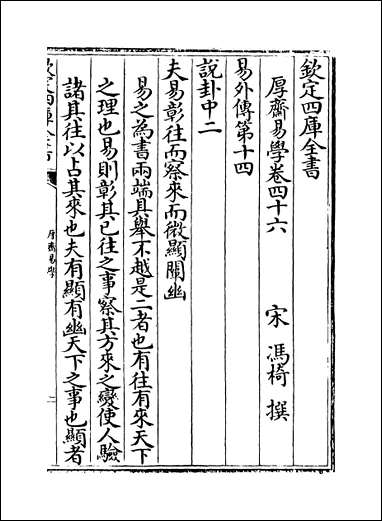 欽定四庫全書
厚齋易學卷四十六
宋 馮椅 撰
易外傳第十四
說卦中二
夫易彰往而察來而微顯闡幽
易之為書兩端具舉不越是二者也有往有來天下
之理也易則彰其已往之事察其方來之變使人驗
諸其往以占其來也夫有顯有幽天下之事也顯者
欽定四庫全書
厚齋易學